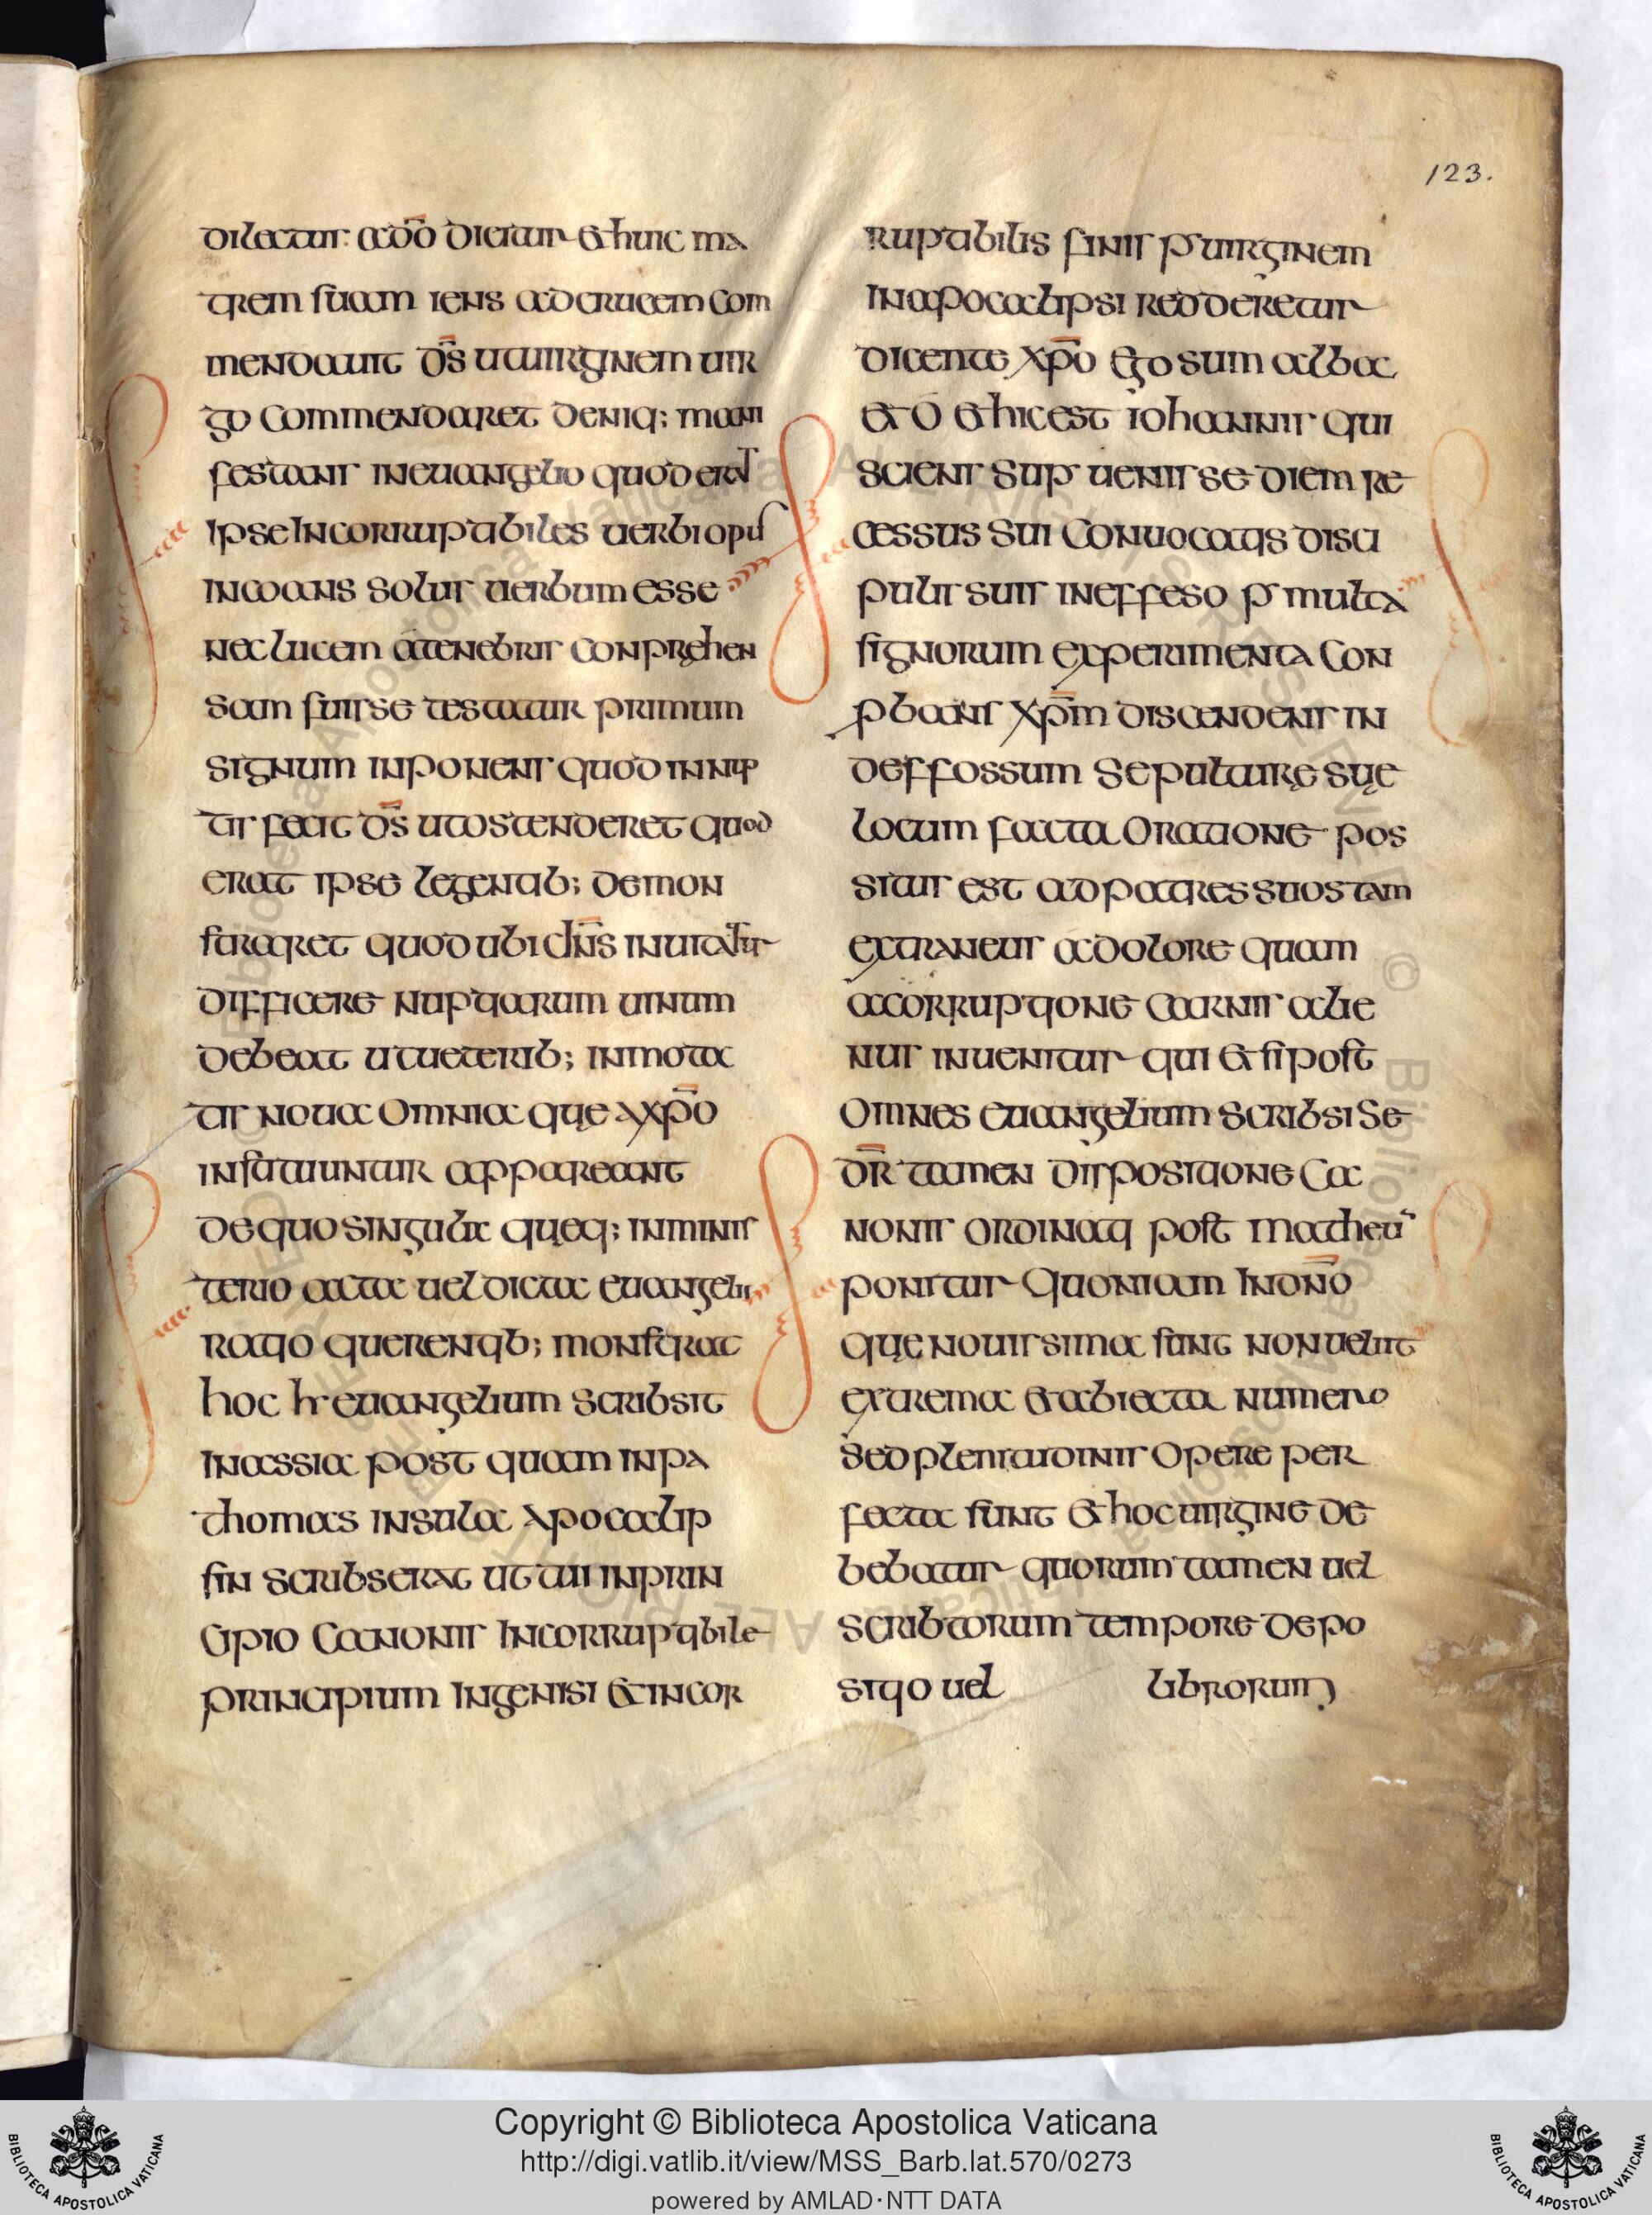 123.
dilectus adō dicitur & huic ma
trem suam iens adcrucem com
mendauit dn̄s utuirginem uir
go commendaret deniq; mani
festans ineuangelio quod erat
ipse incorruptibiles uerbi opus
incoans solus uerbum esse
nec lucem atenebris conprehen
sam fuisse testatur primum
signum inponens quod in nup
tis fecit dn̄s utostenderet quod
erat ipse legentib; demon
straret quod ubi dn̄s inuitatur
difficere nuptiarum uinum
debeat utueterib; inmota
tis noua omnia quę axpō
instituuntur appareant
dequo singula quęq; inminis
terio acta uel dicta euangelii
ratio querentib; monstrat
hoc hr euangelium scribsit
inassia post quam inpa
thomos insula apocalip
sin scribserat ut cui inprin
cipio canonis incorruptibile
principium ingenisi & incor
ruptibilis finis p uirginem
inapocalipsi redderetur
dicente xpō ego sum alba
& o & hic est iohannis qui
sciens sup uenisse diem re
cessus sui conuocatis disci
pulis suis ineffeso p multa
signorum experimenta con
pbans xpm̄ discendens in
deffossum sepulturę suę
locum facta oratione pos
situs est ad patres suos tam
extraneus adolore quam
acorruptione carnis alie
nus inuenitur qui & si post
omnes euangelium scribsi se
dr̄ tamen dispositione ca
nonis ordinati post matheū
ponitur quoniam indn̄o
quę nouissima sunt non uelut
extrema & abiecta numero
sed plenitudinis opere per
fecta sunt & hoc uirgine de
bebatur quorum tamen uel
scribtorum tempore depo
sitio uel librorum
Copyright © Biblioteca Apostolica Vaticana
http://digi.vatlib.it/view/MSS_Barb.lat.570/0273
powered by AMLAD·NTT DATA
BIBLIOTECA APOSTOLICA VATICANA
BIBLIOTECA APOSTOLICA VATICANA